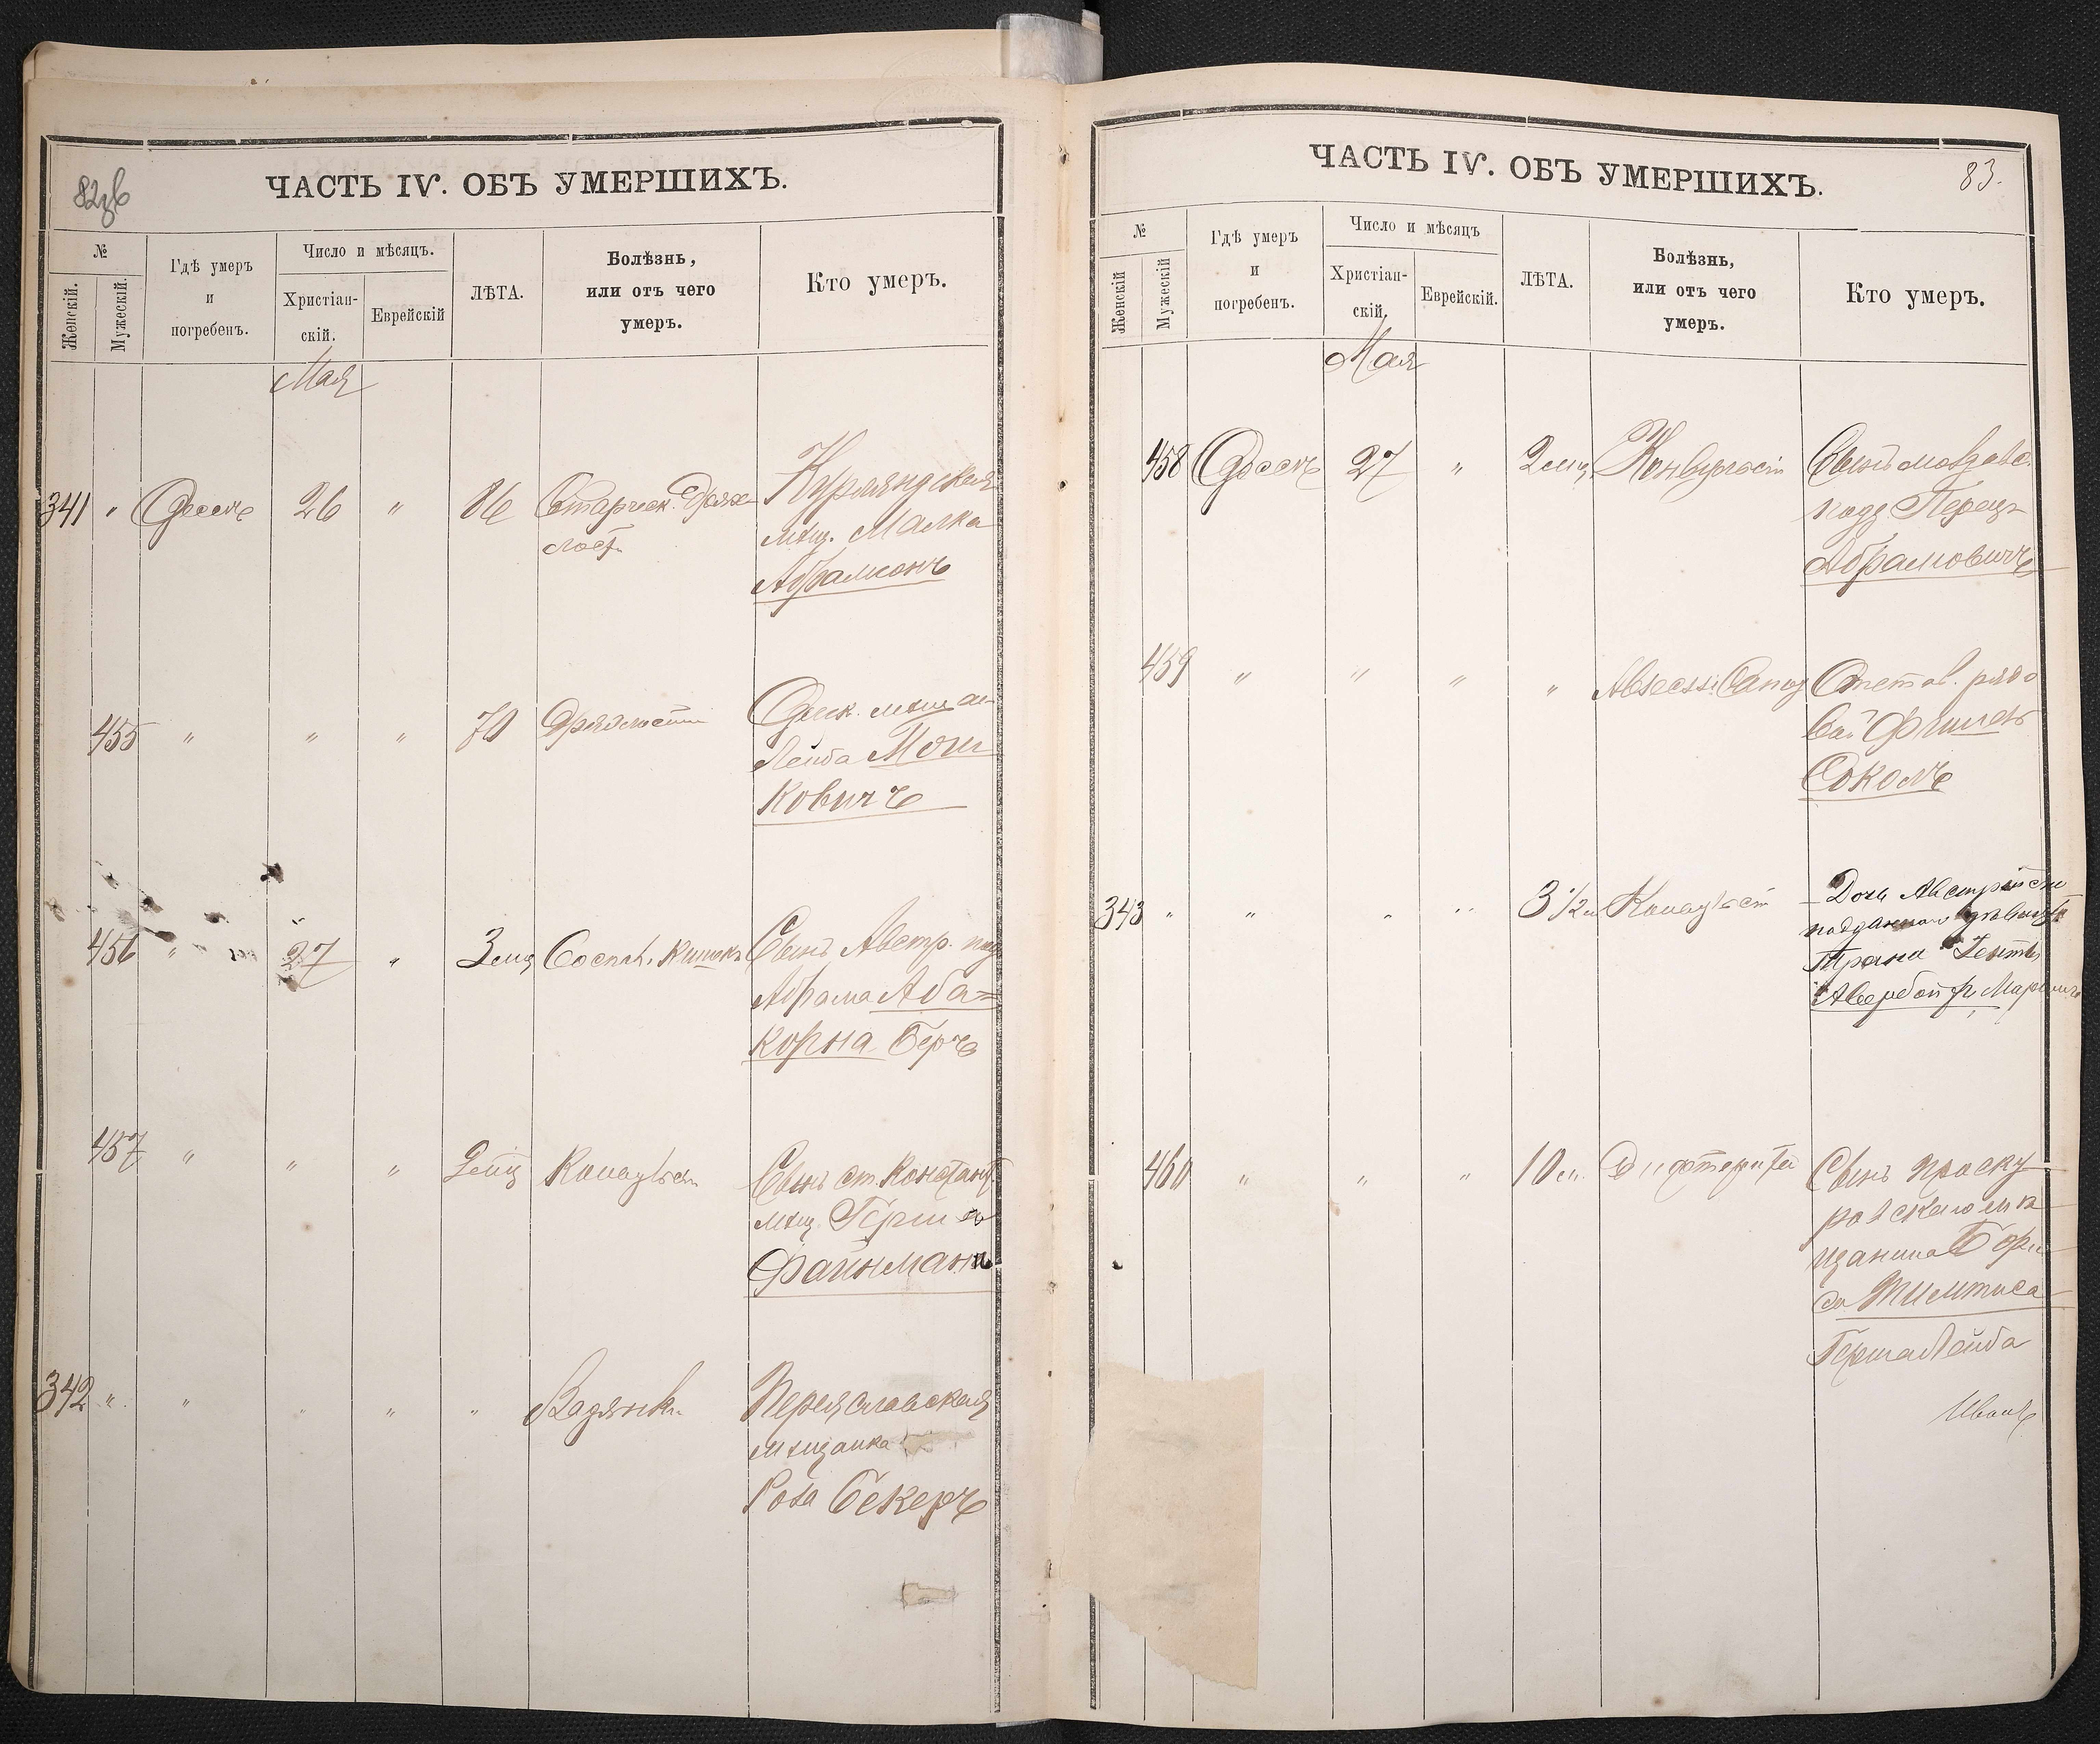 82зв
ЧАСТЬ IV. ОБЪ УМЕРШИХЪ.
№
Женскій.
Мужескій.
Гдѣ умеръ
и
погребенъ.
Число и мѣсяцъ.
Христіан-
скій.
Еврейскій
ЛѢТА.
Болѣзнь,
или отъ чего
умеръ.
Кто умеръ.
Мая
341 " Одессѣ 26 " 86 Старческ. Дрях
лост.
Курляндская
мѣщ. Малка
Абрамсонъ
455 " " " 70 Дряхлости
Одеск. мѣщан
Лейба Мош
ковичъ
456 " 27 " 3 мѣц Воспал. кишекъ
Сынъ Австр. под
Абрама Аба=
корна Беръ
457 " " " 2 мц Коналѣст
Сынъ ст. Констант.
мѣщ. Герш
Файнмана
342 " " " " " Водянки
Переяславская
мѣщанка
Роза Бекеръ
83.
ЧАСТЬ IV. ОБЪ УМЕРШИХЪ.
№
Женскій
Мужескій
Гдѣ умеръ
и
погребенъ.
Число и мѣсяцъ
Христіан-
скій.
Еврейскій.
ЛѢТА.
Болѣзнь,
или отъ чего
умеръ.
Кто умеръ.
Мая
458 Одессѣ 27 " 2 мц. Конвульсіи
Сынъ молдавс.
подд. Перецъ
Абрамовичъ
459 " " " "
Отстав. рядо
вой Фишель
Соколъ
343 " " " " 3 1/2 м
Дочь Австрійск
подданной дѣвицы
Авербойг,
460 " " " 10 м. Дифтерита
Сынъ Проску
ровскаго мѣ
щанина Бори
са Тимтиса
Герш Лейба